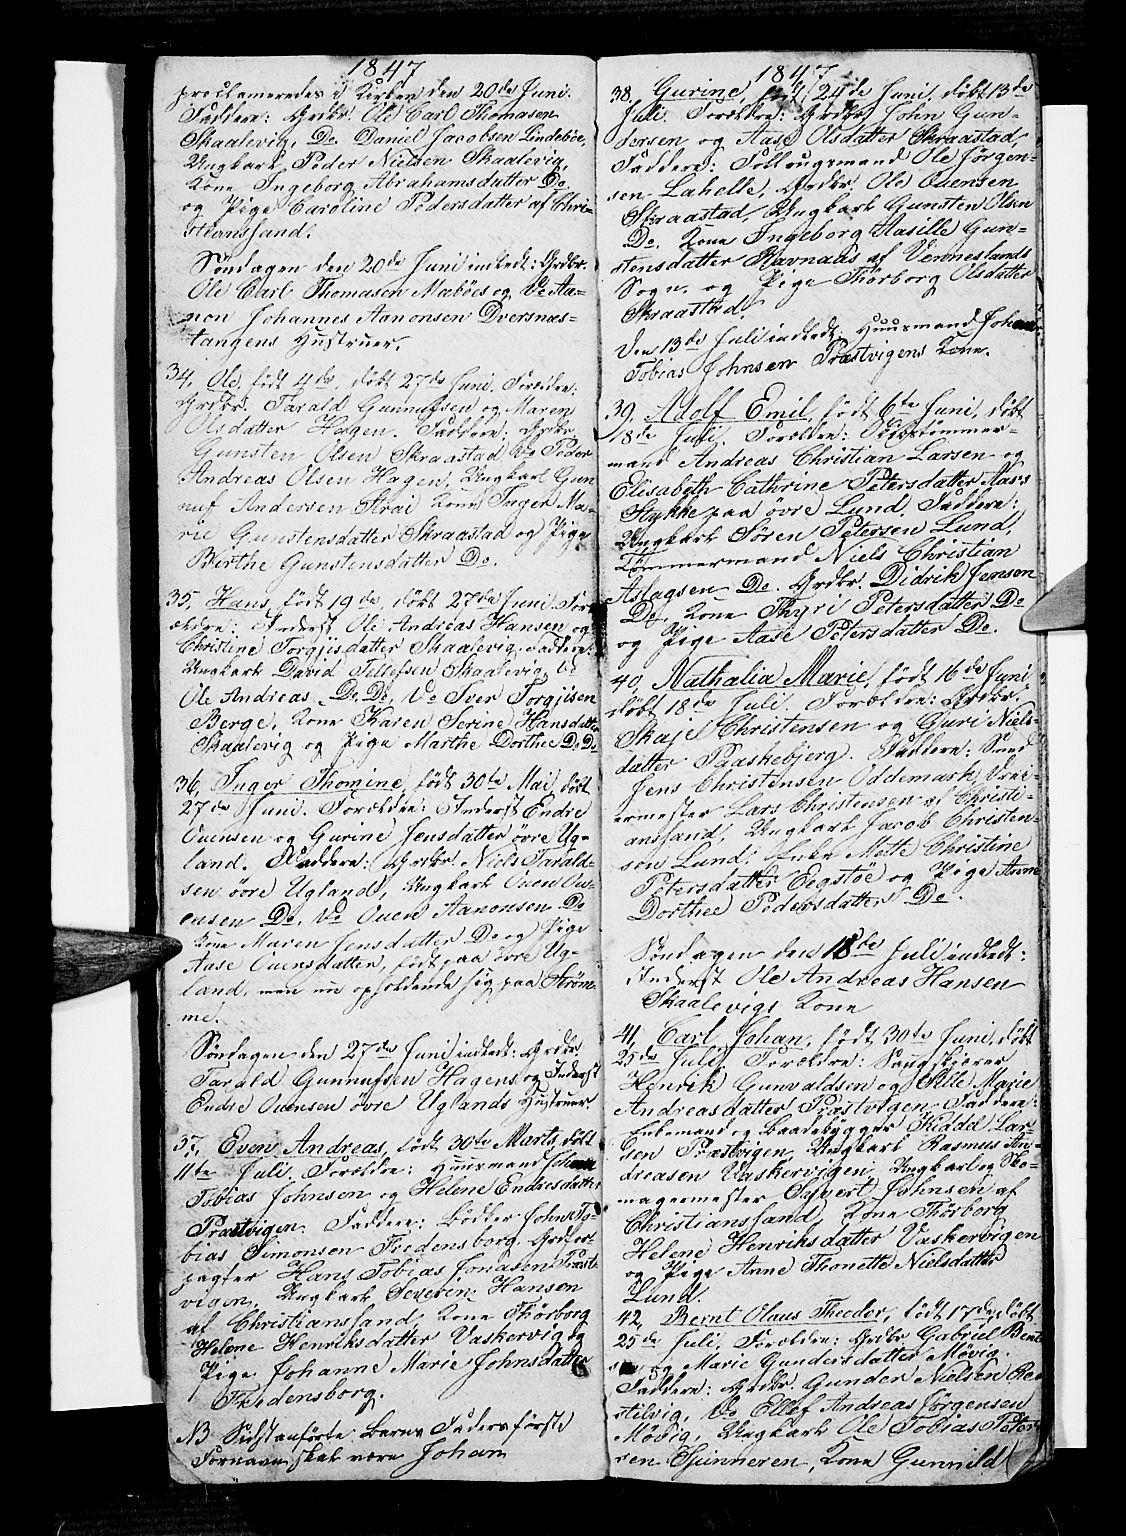 1847
proclameredes i Kirken den 20de Juni.
Faddere: Grdbr. Ole Carl Thomasen
Skaalevig, Do. Daniel Jacobsen Lindebøe,
Ungkarl Peder Nielsen Skaalevig,
Kone Ingeborg Abrahamsdatter Do
og Pige Caroline Pedersdatter af Chri-
stianssand.
Søndagen den 20de Juni indledt: Grdbr.
Ole Carl Thomasen Mabøes og Do Aa-
non Johannes Aanonsen Dversnæs-
tangens Hustruer.
34, Ole, født 4de, døbt 27de Juni. Forældre:
Grdbr. Tarald Gunnufsen og Maren
Olsdatter Hagen. Faddere: Grdbr.
Gunsten Olsen Skraastad, Do Peder
Andreas Olsen Hagen, Ungkarl Gun
nuf Andersen Strai, Kone Inger Ma-
rie Gunstensdatter Skraastad og Pige
Birthe Gunstensdatter Do.
35, Hans, født 19de, døbt 27de Juni. For-
ældre: Inderst Ole Andreas Hansen og
Christine Torgjisdatter Skaalevig. Faddere:
Ungkarl David Tellefsen Skaalevig, Do
Ole Andreas Do. Do, Do Iver Torgjisen
Berge, Kone Karen Serine Hansdatter
Skaalevig og Pige Marthe Dorthee Do Do
36, Inger Thomine, født 30te Mai, døbt
27de Juni. Forældre: Inderst Endre
Ouensen og Gurine Jensdatter øvre Ug-
land. Faddere: Grdbr. Niels Tarald-
sen øvre Ugland, Ungkarl Ouen Ou-
ensen Do, Do Ouen Aanonsen Do
Kone Maren Jensdatter Do og Pige
Aase Ouensdatter, født paa øvre Ug-
land, men nu opholdende sig paa Strøm-
me.
Søndagen den 27de Juni indledt: Grdbr.
Tarald Gunnufsen Hagens og Inderst
Endre Ouensen øvre Uglands Hustruer.
37, Even Andreas, født 30te Marts, døbt
11te Juli. Forældre: Huusmand Johan
Tobias Johnsen og Helene Endresdatter
Præstvigen. Faddere: Bødker John To-
bias Simonsen Fredensborg, Grdfor-
pagter Hans Tobias Jonasen Præst-
vigen, Ungkarl Severin Hansen
af Christianssand, Kone Thorborg
Helene Henriksdatter Vaskervig og
Pige Johanne Marie Johnsdatter
Fredensborg.
NB Sidstanførte Barns Faders første
Fornavn skal være Johan
1847
38, Gurine, født 24de Juni, døbt 13de
Juli. Forældre: Grdbr. John Gun-
dersen og Aase Olsdatter Skraastad.
Faddere: Toldrugsmand Ole Jørgen-
sen Lahelle, Grdbr. Ole Ouensen
Skraastad, Ungkarl Gunsten Olsen
Do. Kone Ingeborg Aasille Gun-
stensdatter Ravnaas af Venneslands
Sogn, og Pige Thorborg Olsdatter
Skraastad.
Den 13de Juli indledt: Huusmand Johan
Tobias Johnsen Præstvigens Kone.
39, Adolf Emil, født 6te Juni, døbt
18de Juli. Forældre: Oppstømmer-
mand Andreas Christian Larsen og
Elisabeth Cathrine Petersdatter Aas's
Stykke paa øvre Lund. Faddere:
Ungkarl Søren Petersen Lund,
Tømmermand Niels Christian
Aslagsen Do. Grdbr. Didrik Jensen
Do, Kone Thyri Petersdatter Do
og Pige Aase Petersdatter Do.
40, Nathalia Marie, født 16de Juni
døbt 18de Juli. Forældre: Grdbr.
Skaje Christensen og Guri Niels-
datter Paaskebjerg. Faddere:
Jens Christensen Oddemark,
ermester Lars Christensen af Christi-
anssand, Ungkarl Jacob Christen-
sen Lund; Enke Mette Christine
Petersdatter Eegstøe og Pige Anne
Dorthee Pedersdatter Do.
Søndagen den 18de Juli indledt:
Inderst Ole Andreas Hansen
Skaalevigs Kone
41, Carl Johan, født 30te Juni, døbt
25de Juli. Forældre:
Henrik Gunvaldsen og Sille Marie
Andreasdatter Præstvigen. Faddere:
Enkemand og Baadebygger Kiddel Lar-
sen Præstvigen, Ungkarl Rasmus An-
dreasen Vaskervigen, Ungkarl og Sko-
magermester Syvert Johnsen af
Christianssand, Kone Thorborg
Helene Henriksdatter Vaskervigen
og Pige Anne Thonette Nielsdatter
Lund.
42, Bernt Olaus Theodor, født 17de, døbt
25de Juli. Forældre: Grdbr Gabriel Bent
sen og Marie Gundersdatter Møvig.
Faddere: Grdbr. Gunder Nielsen Re-
stelvig, Do Ellef Andreas Jørgensen
Møvig, Ungkarl Ole Tobias Peter-
sen Spinneren, Kone Gunnild